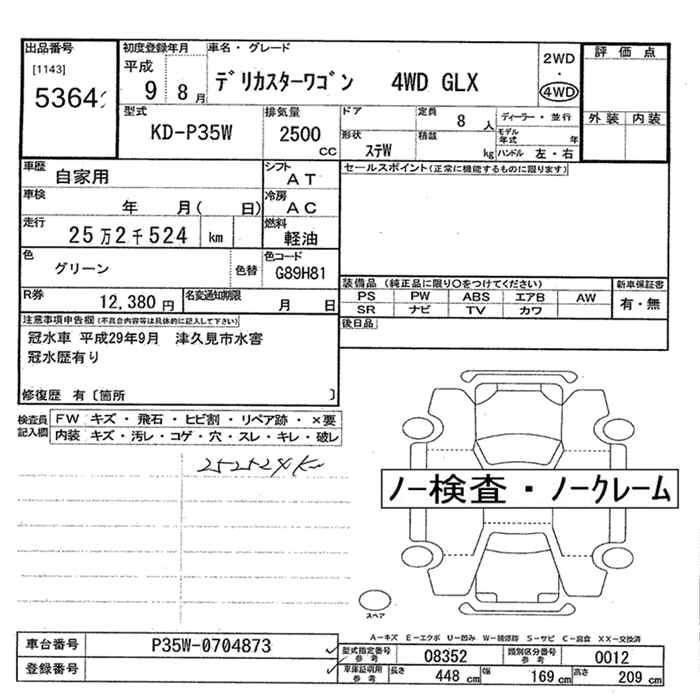 出品番号
[1143]
5364
初度登録年月
平成
9 8月
車名・グレード
ﾃﾞﾘｶｽﾀｰﾜｺﾞﾝ 4WD GLX
2WD
・
4WD
評価点
外装 内装
型式
KD-P35W
排気量
2500
CC
ドア
定員
8 人
ディーラー・並行
形状
ｽﾃW
積載
kg
モデル年式 年
ハンドル 左・右
車歴
自家用
シフト
AT
セールスポイント(正常に機能するものに限ります)
車検
年 月( 日)
冷房
AC
走行
25万2千524 km
燃料
軽油
色
グリーン
色替
色コード
G89H81
装備品 (純正品に限り○をつけてください)
新車保証書
PS PW ABS エアB AW
有・無
SR ナビ TV カワ
R券
12,380円
名変通知期限
月 日
後日品
注意事項申告欄(不具合内容等は具体的に記入して下さい)
冠水車 平成29年9月 津久見市水害
冠水歴有り
修復歴 有〔箇所 〕
検査員記入欄
FW キズ・飛石・ヒビ割・リペア跡・×要
内装 キズ・汚レ・コゲ・穴・スレ・キレ・破レ
252524K
ノー検査・ノークレーム
スペア
A－キズ E－エクボ U－凹み W－補修跡 S－サビ C－腐食 XX－交換済
車台番号
P35W-0704873
型式指定番号参考
08352
類別区分番号参考
0012
登録番号
車庫証明用参考
長さ 448 cm
幅 169 cm
高さ 209 cm